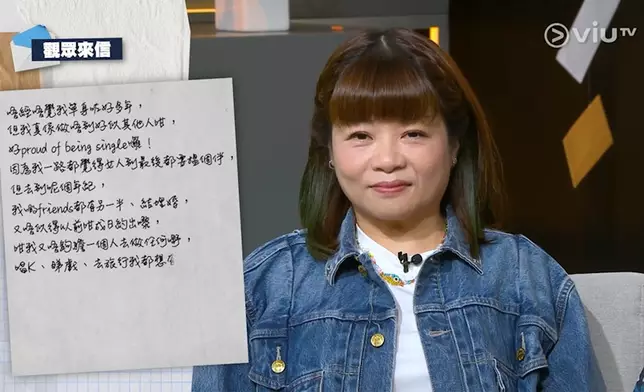 觀眾來信
VIUTV
唔經唔覺我單身咗好多年，
但我真係做唔到好似其他人咁，
好proud of being single囉！
因為我一路都覺得女人到最後都要搵個伴，
但去到呢個年紀，
我啲friends都有另一半、結晒婚，
又唔似得以前咁成日約出嚟，
咁我又唔夠膽一個人去做任何嘢，
唱K、睇戲、去旅行我都想